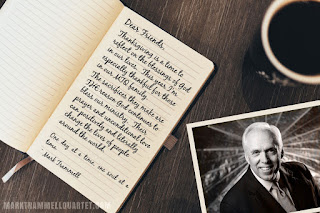 Dear Friends,
Thanksgiving is a time to
reflect on the blessings of God
in our lives. This year I'm
especially thankful for those
in our MTQ family.
The sacrifices they make are
THE reason God continues to
bless our ministry. Their
prayers and unconditional giving
can positively and literally
change the lives of people
around the world!
One day at a time, one soul at a
time.
Mark Trammell
MARKTRAMMELLQUARTET.COM